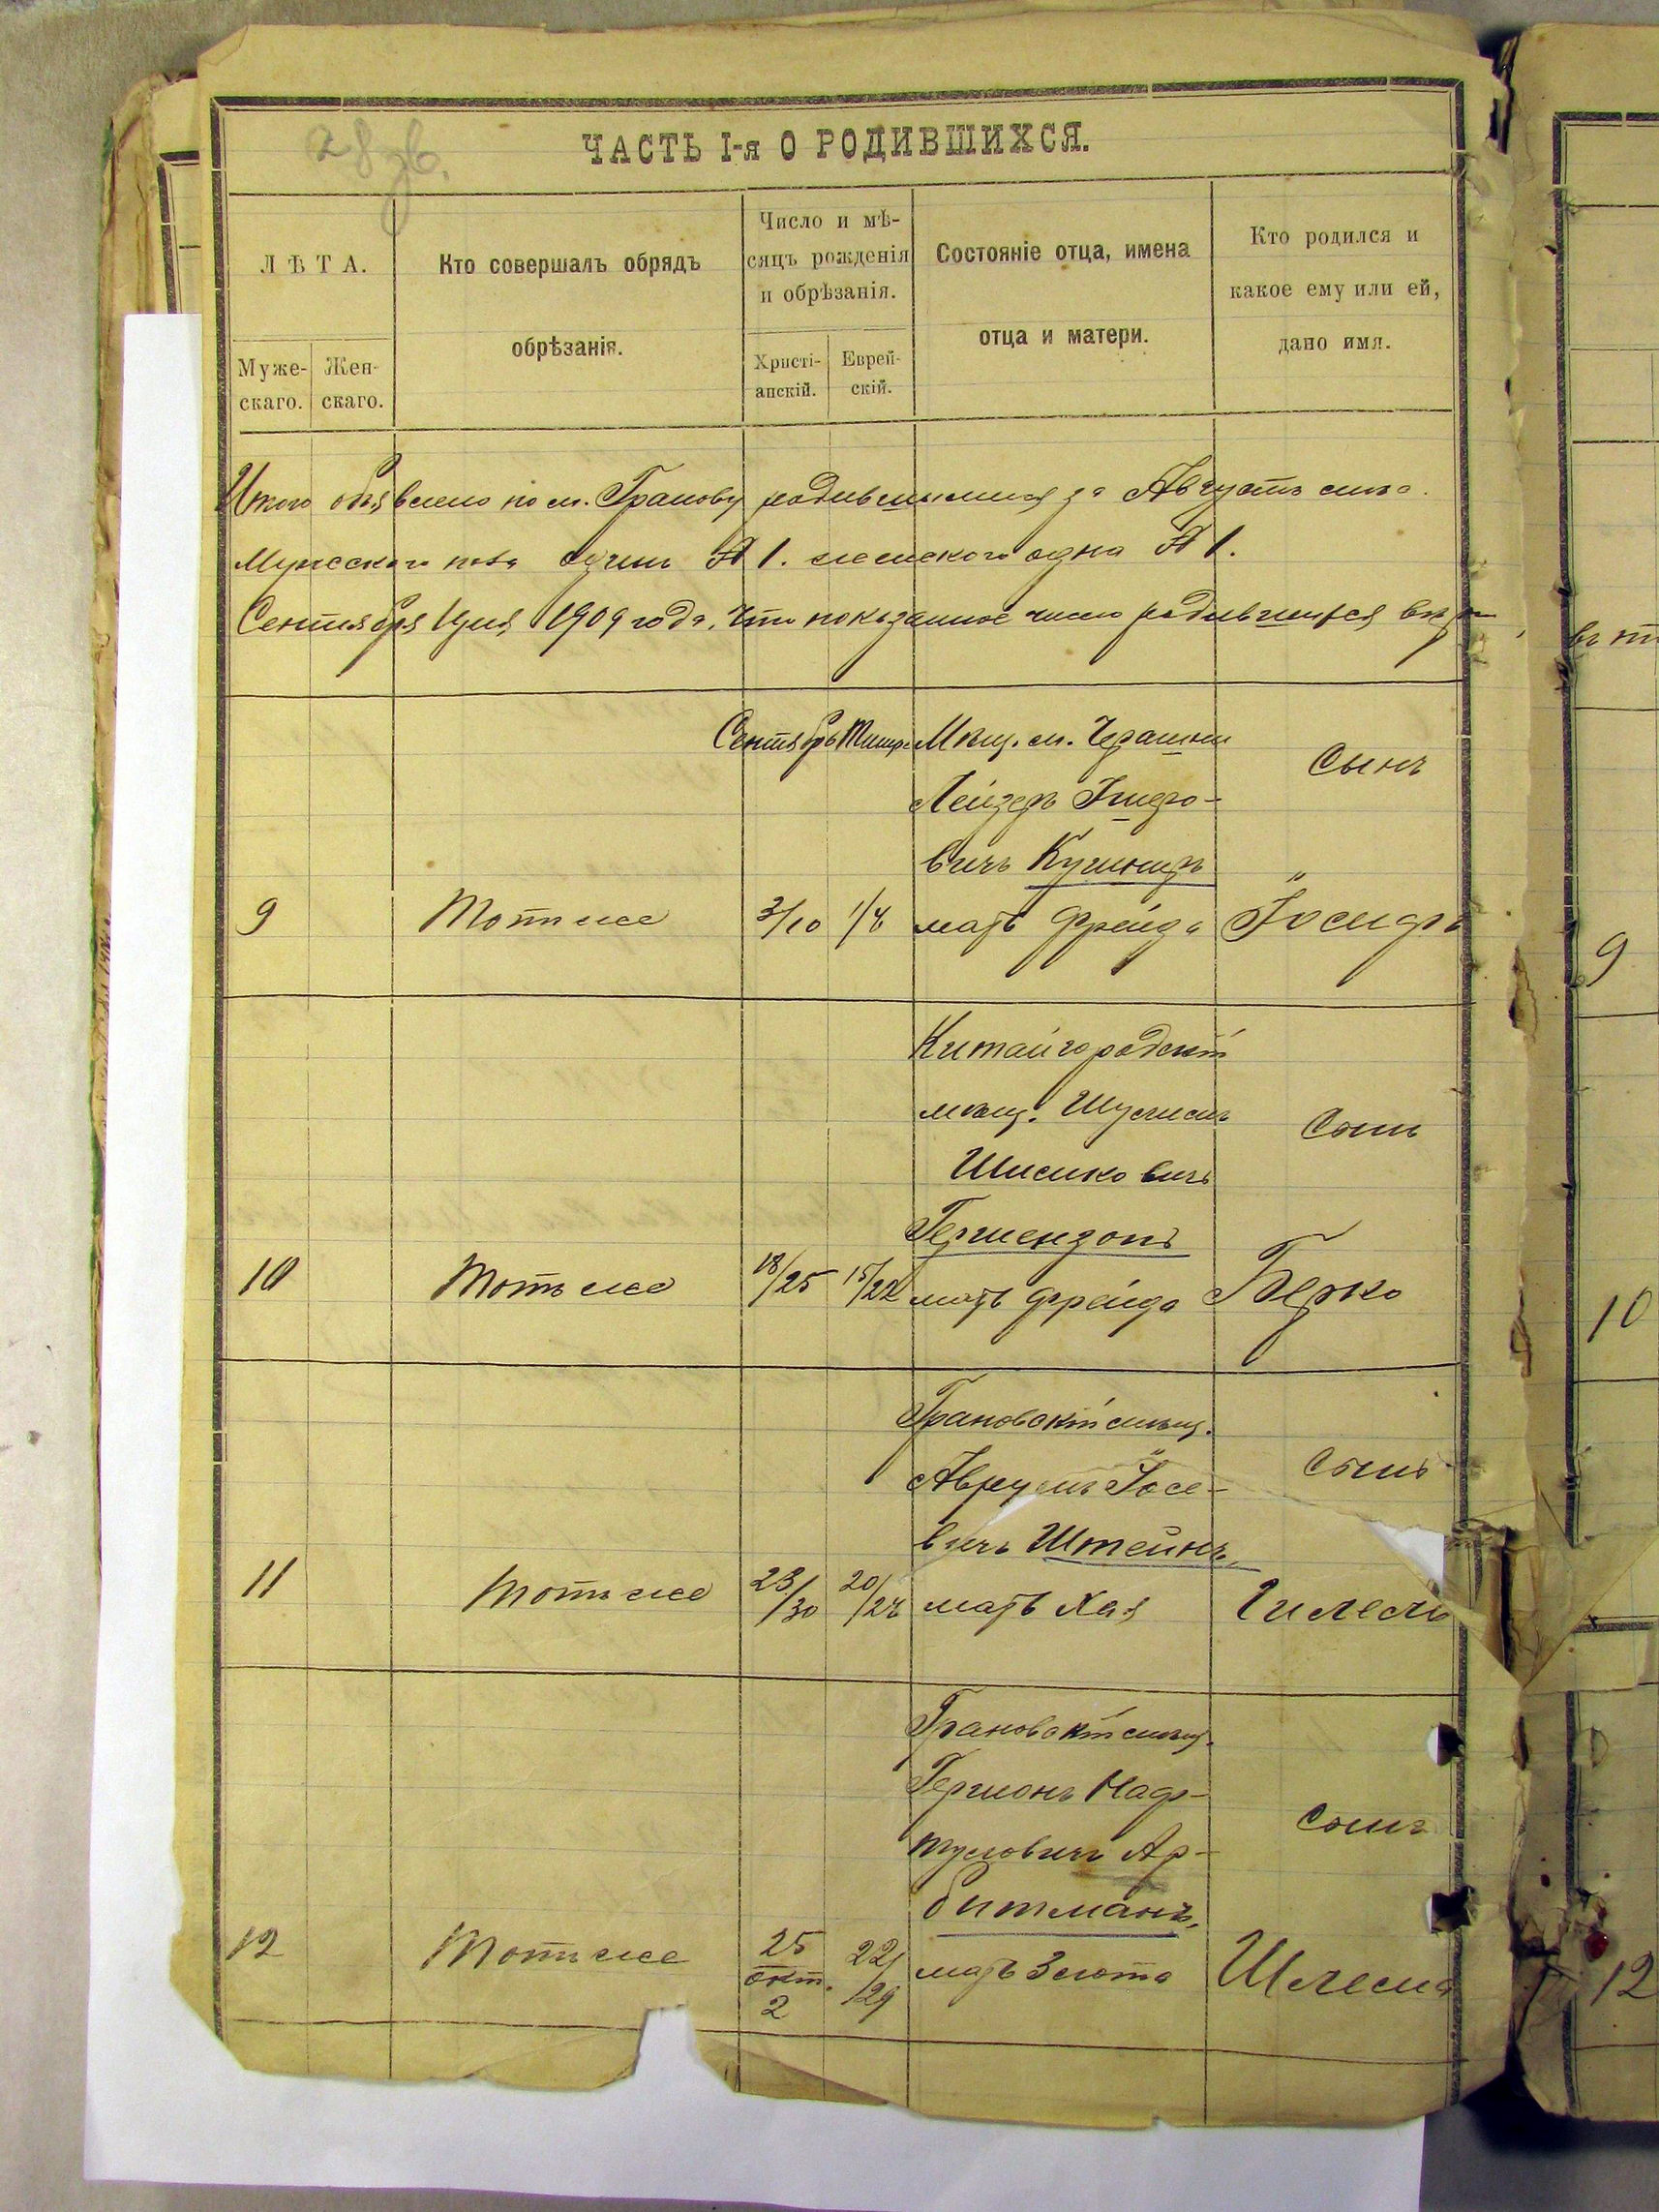 28 зв.
ЧАСТЬ I-я О РОДИВШИХСЯ.
ЛѢТА.
Муже-
скаго.
Жен-
скаго.
Кто совершалъ обрядъ
обрѣзанія.
Число и мѣ-
сяцъ рожденія
и обрѣзанія.
Христі-
анскій.
Еврей-
скій.
Состояніе отца, имена
отца и матери.
Кто родился и
какое ему или ей,
дано имя.
Итого объявлено по м. Гранову родившимися за Августъ
Мужескаго пола одинъ № 1. женскаго одна № 1.
Сентября 1909 года. Что показанное число родившихся
Сентябрь Тишри Мѣщ. м.
Сынъ
Лейзеръ
вичъ Кушниръ
9 Тотъ же 3/10 1/8 мать Фрейда Іосифъ
Китайгородскій
мѣщ.
Сынъ
Шмиловичъ
Гершензонъ
10 Тотъ же 18/25 15/22 мать Фрейда Берко
Грановскій мѣщ.
Аврумъ Іосе-
Сынъ
вичъ Штейнъ,
11 Тотъ же 23/30 20/27 мать Хая Гилель
Грановскій мѣщ.
Гершонъ Наф-
Сынъ
туловичъ Ар-
битманъ,
12 Тотъ же 25 окт. 2 22/29 мать Злота Шлема
въ
9
10
12